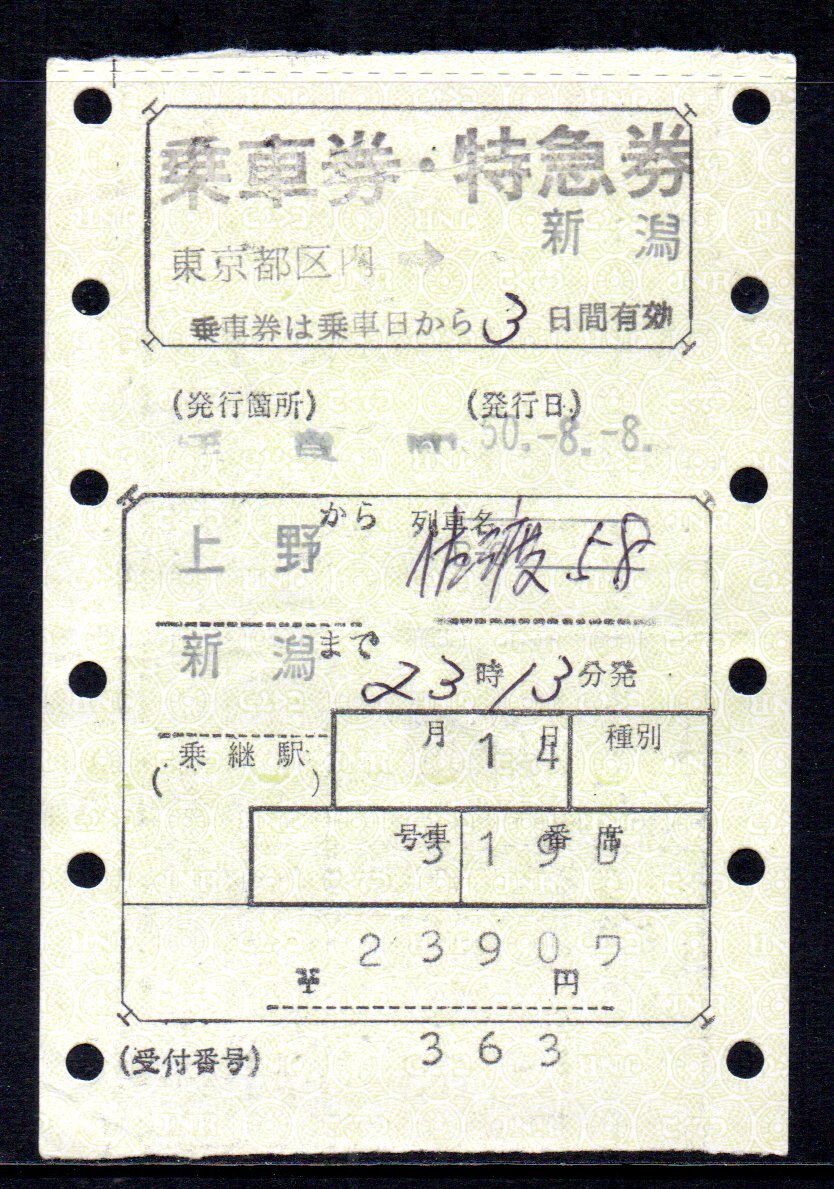 乗車券・特急券
東京都区内 → 新潟
乗車券は乗車日から3日間有効
(発行箇所) (発行日)
50.-8.-8.
上野から 列車名 佐渡58
新潟まで 23時13分発
(乗継駅) 月 14日 種別
3号車 19D番席
¥ 2390ワ円
(受付番号) 363